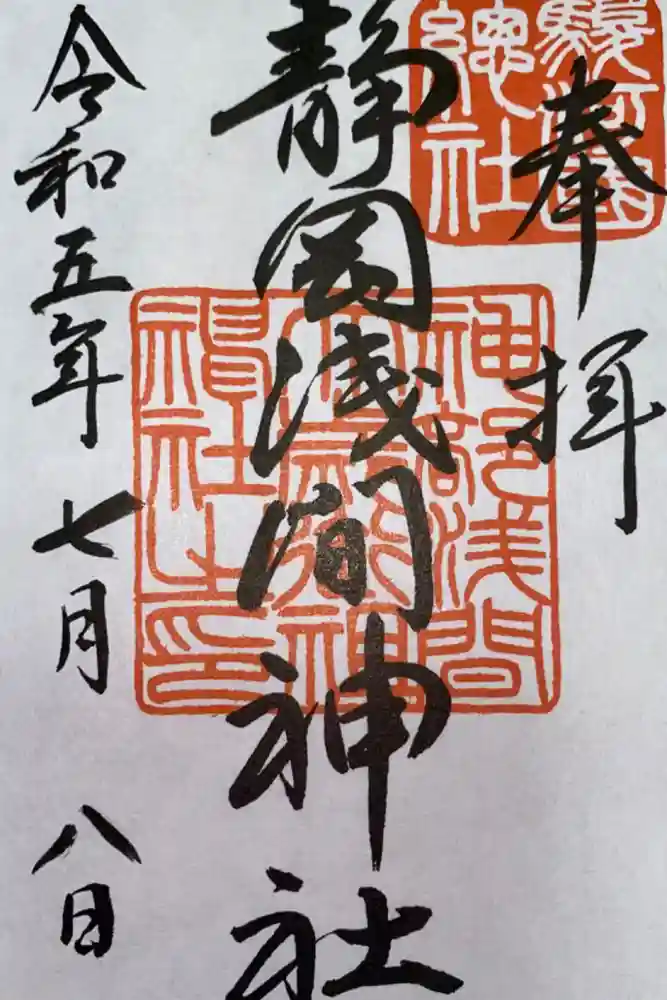 奉拝
駿河國
總社
静岡浅間神社
神部浅間
令和五年七月八日